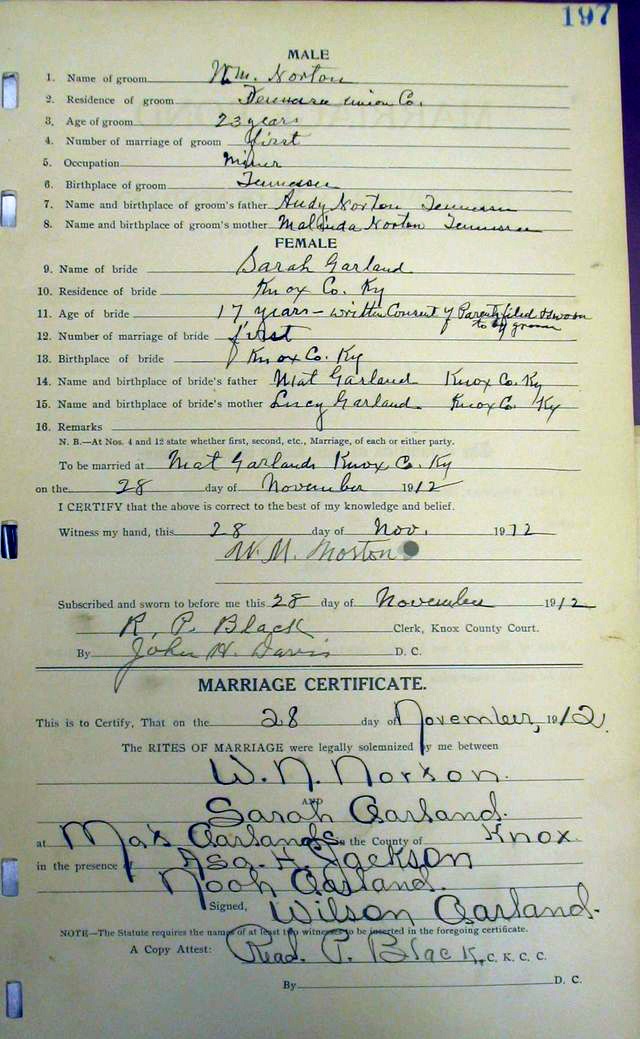 197
MALE
1. Name of groom Wm. Norton
2. Residence of groom Tennessee Union Co.
3. Age of groom 23 years
4. Number of marriage of groom first
5. Occupation Miner
6. Birthplace of groom Tennessee
7. Name and birthplace of groom's father Andy Norton Tennessee
8. Name and birthplace of groom's mother Malinda Norton Tennessee
FEMALE
9. Name of bride Sarah Garland
10. Residence of bride Knox Co. Ky
11. Age of bride 17 years – written Consent of Parents filed & sworn
to by groom
12. Number of marriage of bride first
13. Birthplace of bride Knox Co. Ky
14. Name and birthplace of bride's father Mat Garland Knox Co. Ky
15. Name and birthplace of bride's mother Lucy Garland Knox Co. Ky
16. Remarks
N. B.—At Nos. 4 and 12 state whether first, second, etc., Marriage, of each or either party.
To be married at Mat Garlands Knox Co. Ky
on the 28 day of November 1912
I CERTIFY that the above is correct to the best of my knowledge and belief.
Witness my hand, this 28 day of Nov. 1912
W. M. Norton
Subscribed and sworn to before me this 28 day of November 1912
R. P. Black Clerk, Knox County Court.
By John H. Davis D. C.
MARRIAGE CERTIFICATE.
This is to Certify, That on the 28 day of November, 1912.
The RITES OF MARRIAGE were legally solemnized by me between
W. N. Norton.
AND
Sarah Garland.
at Mat Garlands in the County of Knox
in the presence of Asa. H. Jackson
Noah Garland.
Signed, Wilson Garland.
NOTE—The Statute requires the names of at least two witnesses to be inserted in the foregoing certificate.
A Copy Attest: Read. P. Black, C. K. C. C.
By D. C.